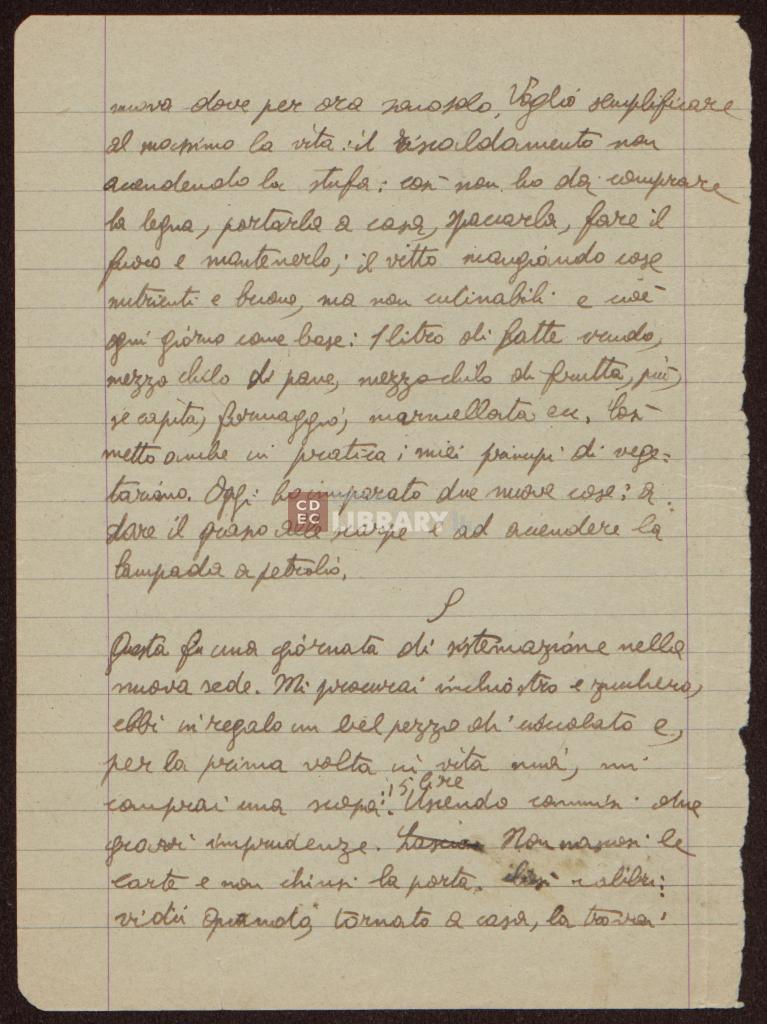 nuova dove per ora sono solo. Voglio semplificare
al massimo la vita: il riscaldamento non
accendendo la stufa: così non ho da comprare
la legna, portarla a casa, spaccarla, fare il
fuoco e mantenerlo; il vitto mangiando cose
nutrienti e buone, ma non culinabili e cioè
ogni giorno come base: 1 litro di latte crudo,
mezzo chilo di pane, mezzo chilo di frutta, più,
se capita, formaggio, marmellata ecc. Così
metto anche in pratica i miei principi di vege-
tariano. Oggi ho imparato due nuove cose: a
dare il grasso alle scarpe e ad accendere la
lampada a petrolio.
CDEC LIBRARY
Questa fu una giornata di sistemazione nella
nuova sede. Mi procurai inchiostro e zucchero,
ebbi in regalo un bel pezzo di cioccolato e,
per la prima volta in vita mia, mi
15 lire
comprai una scopa. Uscendo commisi due
gravi imprudenze. Non nascosi le
carte e non chiusi la porta.
quando, tornato a casa, la trovai